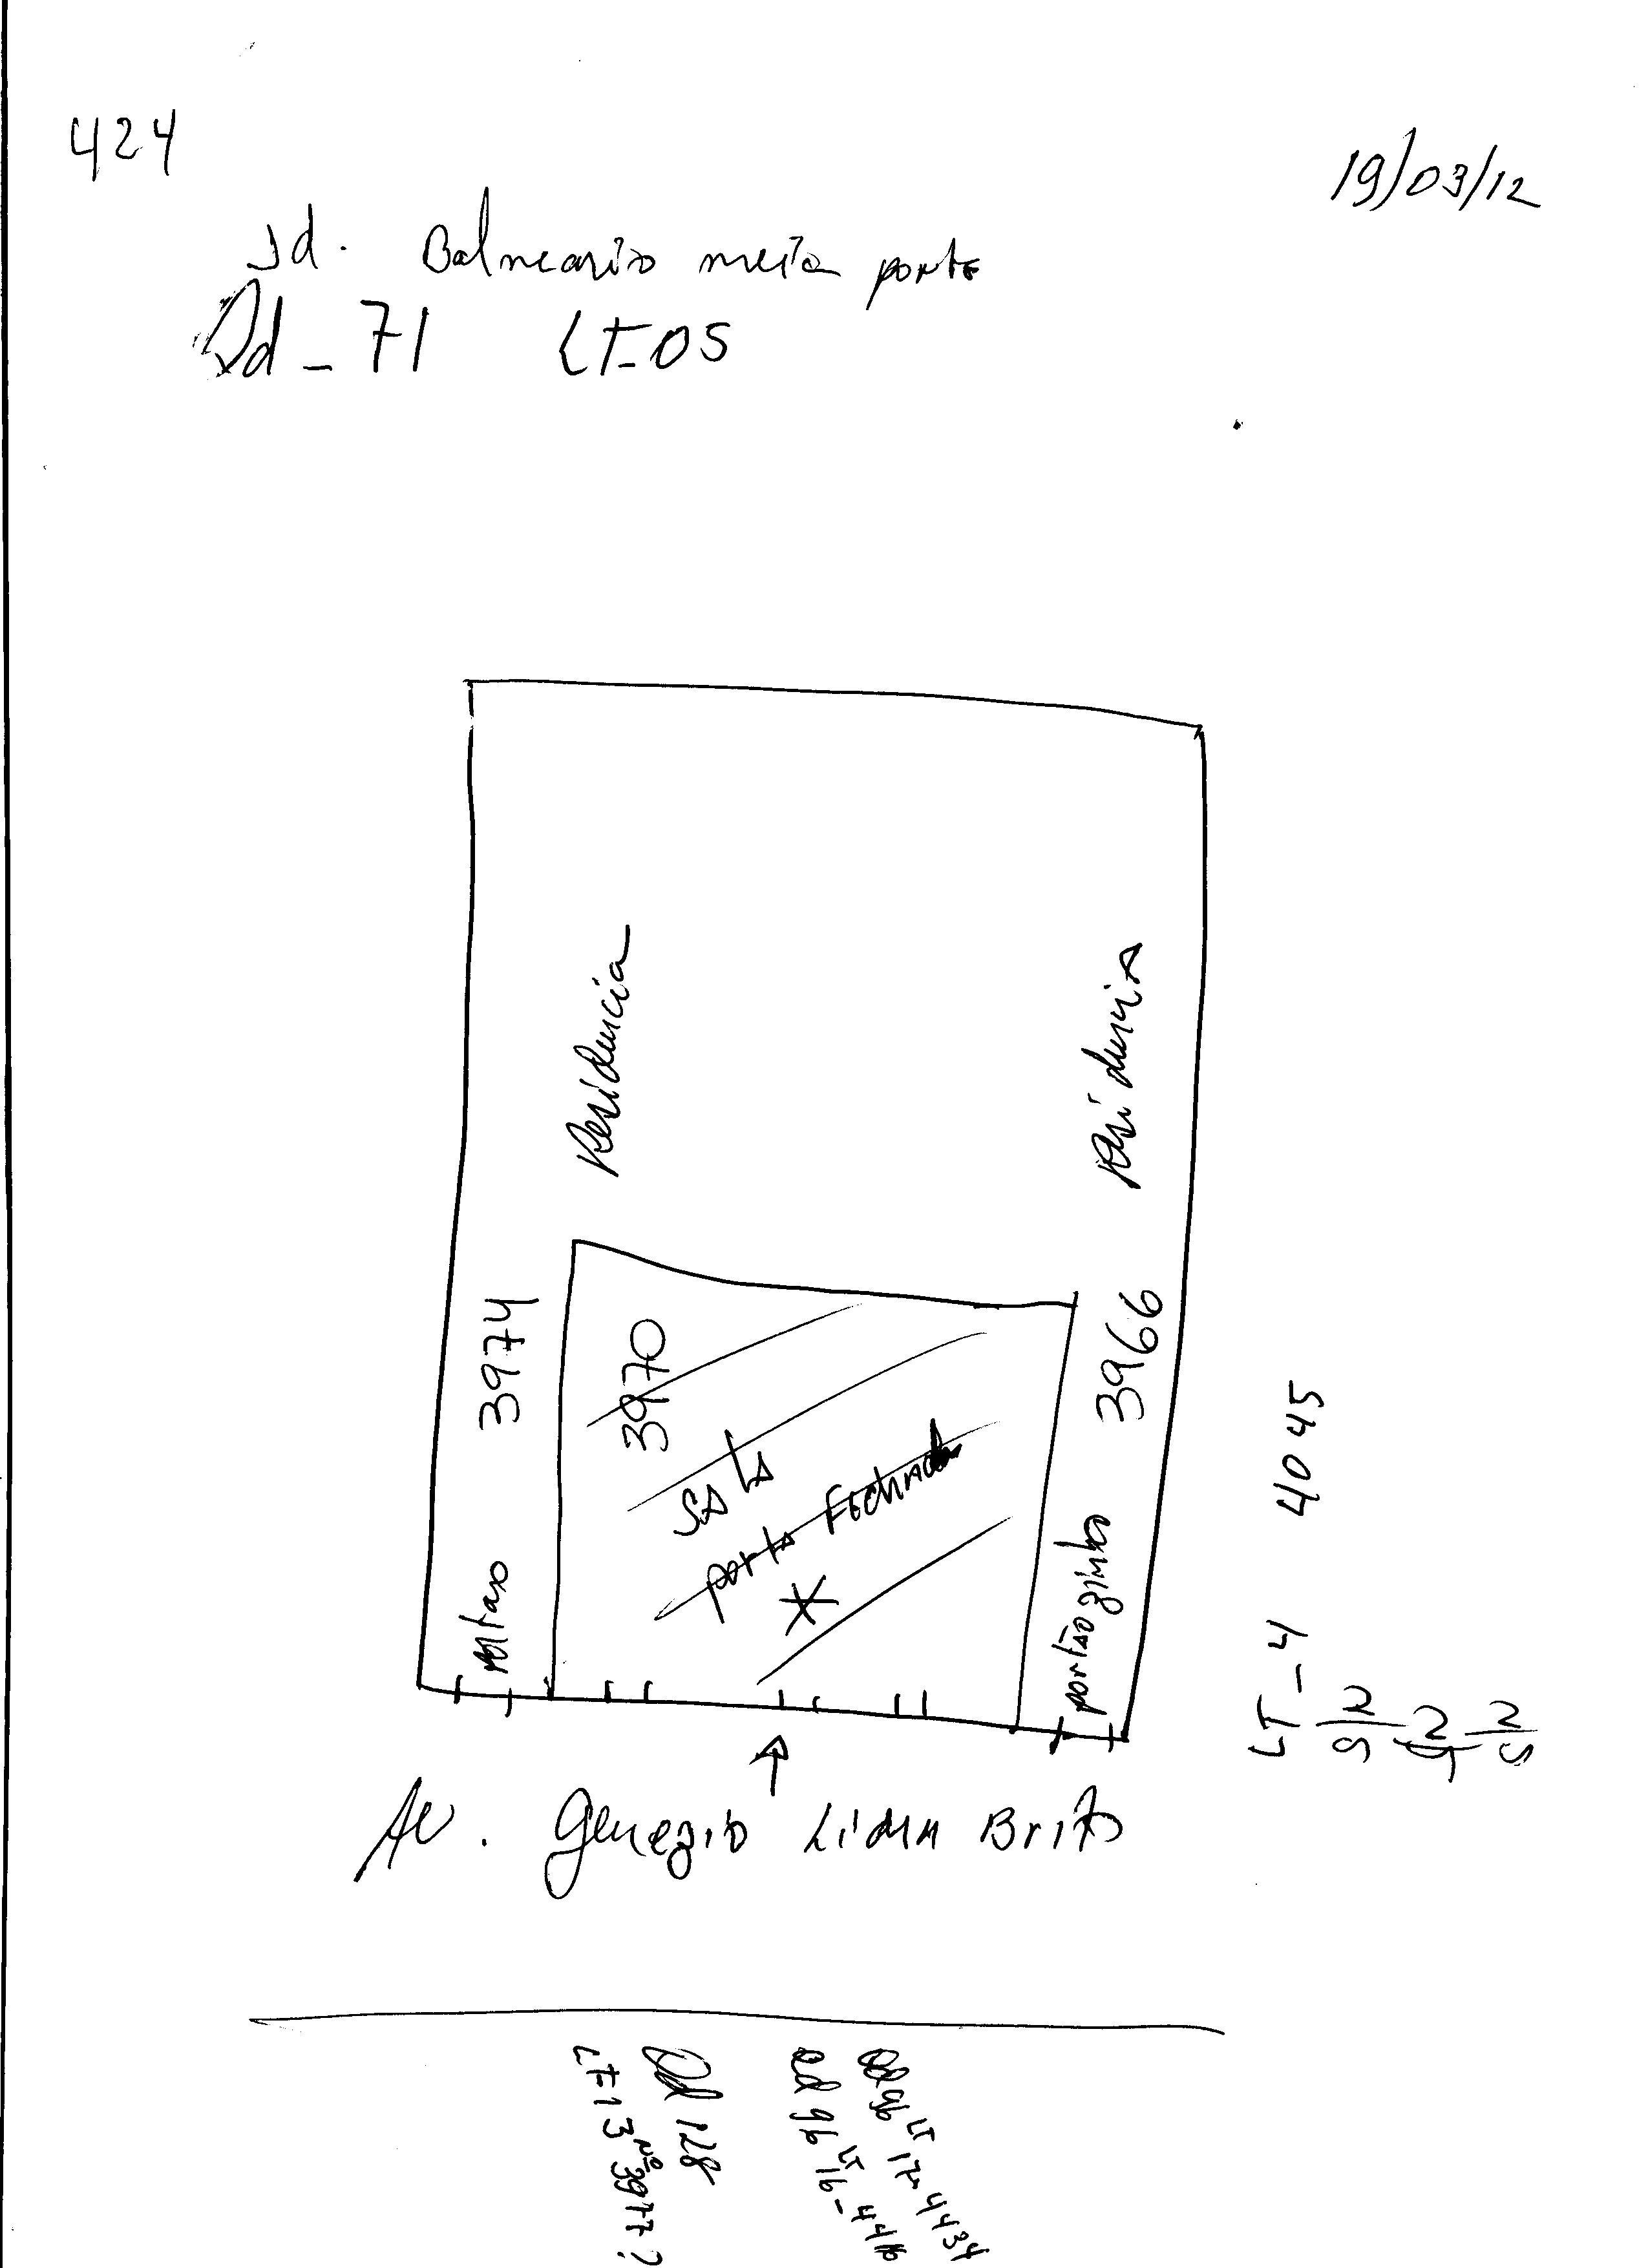 424
19/03/12
Jd. Balneario meia ponte
Qd - 71 LT-05
Residencia
Residencia
3974
3970
3966
SALA
porta Fechada
*
portãozinho
4045
LT-4
Av. Genezio Lima Brito
Qd 128
LT-13 Nº 3977?
Qd 96 LT 17- 4434
Qd 96 LT 16-